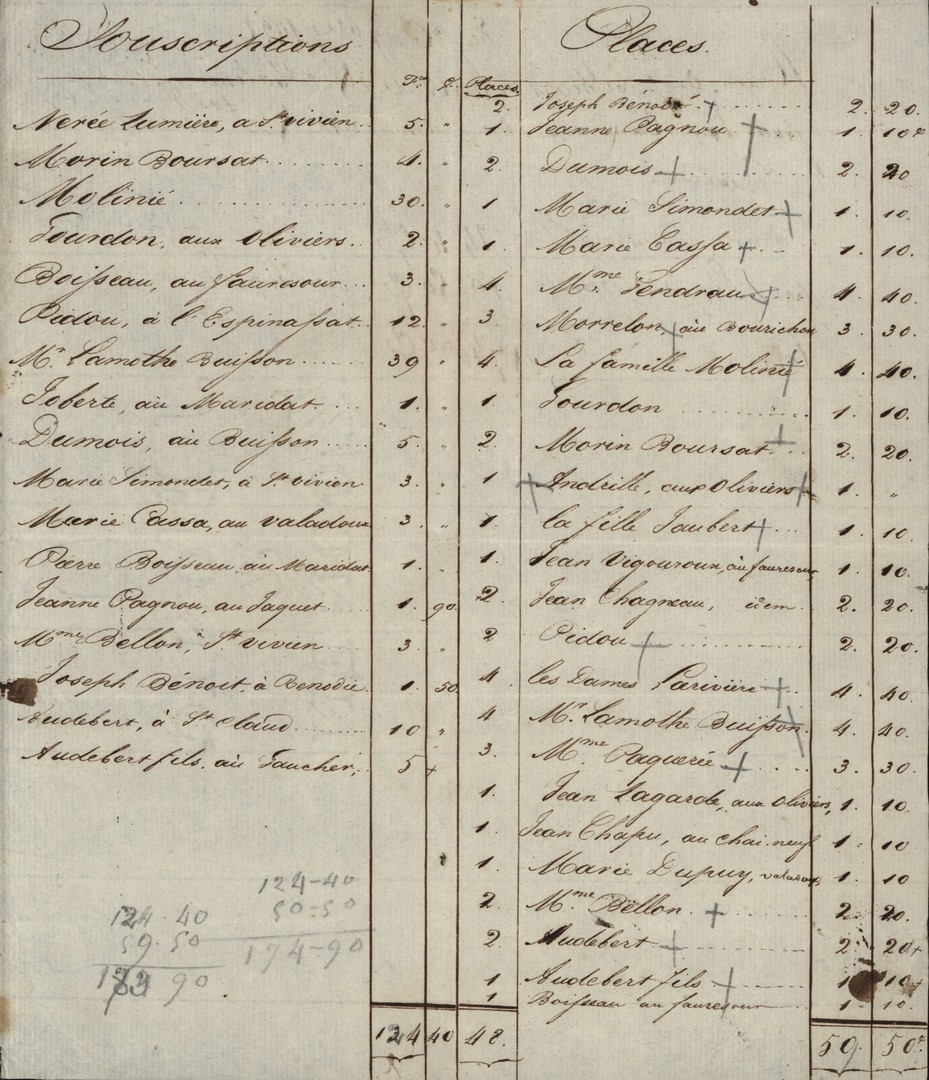 Souscriptions
Fr. C.
Nerée Lumière, a St. vivien. 5. "
Morin Boursat 4. "
Molinié 30. "
Tourdon, aux Oliviers. 2. "
Boisseau, au fauresour 3. "
Pidou, à l'Espinassat. 12. "
Mr. Lamothe Buisson 39 "
Joberte, au Maridat. 1. "
Dumois, au Buisson 5 "
Marie Simondet, à St. vivien 3. "
Marie Cassa, au valadoux 3. "
Pierre Boisseau, au Maridat 1. "
Jeanne Pagnou, au Jaquet 1. 90.
Mme. Bellon, St. vivien 3. "
Joseph Bénoit, à Benodie. 1. 50.
Audebert, à St. Claud 10 "
Audebert fils. au Faucher, 5 +
124 40
124-40
50=50
174-90
124-40
59.50
183 90.
Places.
Places
2. Joseph Bénoit + 2. 20.
1. Jeanne Pagnou + 1. 10c
2. Dumois + 2. 20
1 Marie Simondet + 1. 10.
1. Marie Cassa + 1. 10.
4. Mme. Gendrau + 4. 40.
3. Morrelon, au Bourichou 3. 30.
4. La famille Molinié 4. 40.
1. Tourdon 1. 10.
2. Morin Boursat + 2. 20.
1 + Indrille, aux Oliviers + 1. "
1. la fille Jaubert + 1. 10.
1. Jean Vigouroux, au fauresour 1. 10.
2. Jean Chagneau, idem 2. 20.
2 Pidou + 2. 20.
4 les Dames Larivière + 4. 40.
4 Mr. Lamothe Buisson. 4. 40.
3. Mme Paguerie + 3. 30.
1. Jean Lagarde, aux Oliviers, 1. 10.
1. Jean Chapu, au chai neuf 1. 10
1. Marie Dupuy, valadoux, 1. 10
2. Mme. Bellon. + 2. 20.
2. Audebert + 2. 20+
1 Audebert fils + 1 10+
1 Boisseau au fauresour 1. 10.
48. 59. 50c